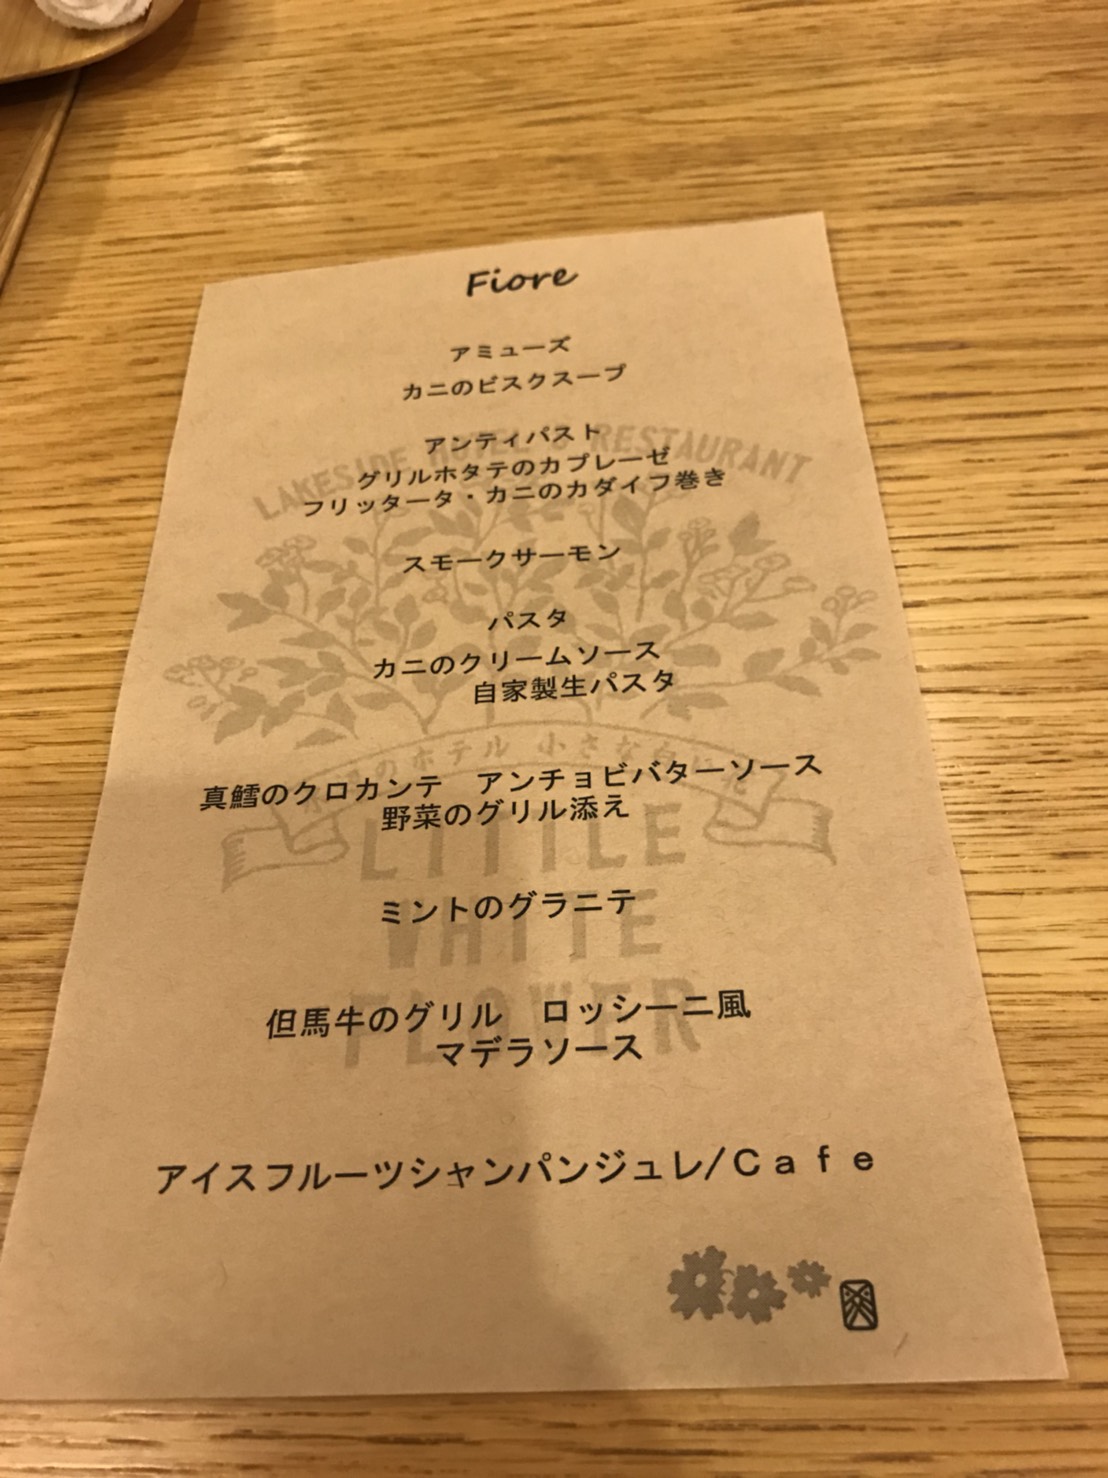 Fiore
アミューズ
カニのビスクスープ
アンティパスト
グリルホタテのカプレーゼ
フリッタータ・カニのカダイフ巻き
スモークサーモン
パスタ
カニのクリームソース
自家製生パスタ
真鱈のクロカンテ　アンチョビバターソース
野菜のグリル添え
ミントのグラニテ
但馬牛のグリル　ロッシーニ風
マデラソース
アイスフルーツシャンパンジュレ/Ｃａｆｅ
LAKESIDE HOTEL'S RESTAURANT
のホテル 小さな白い
LITTLE
WHITE
FLOWER